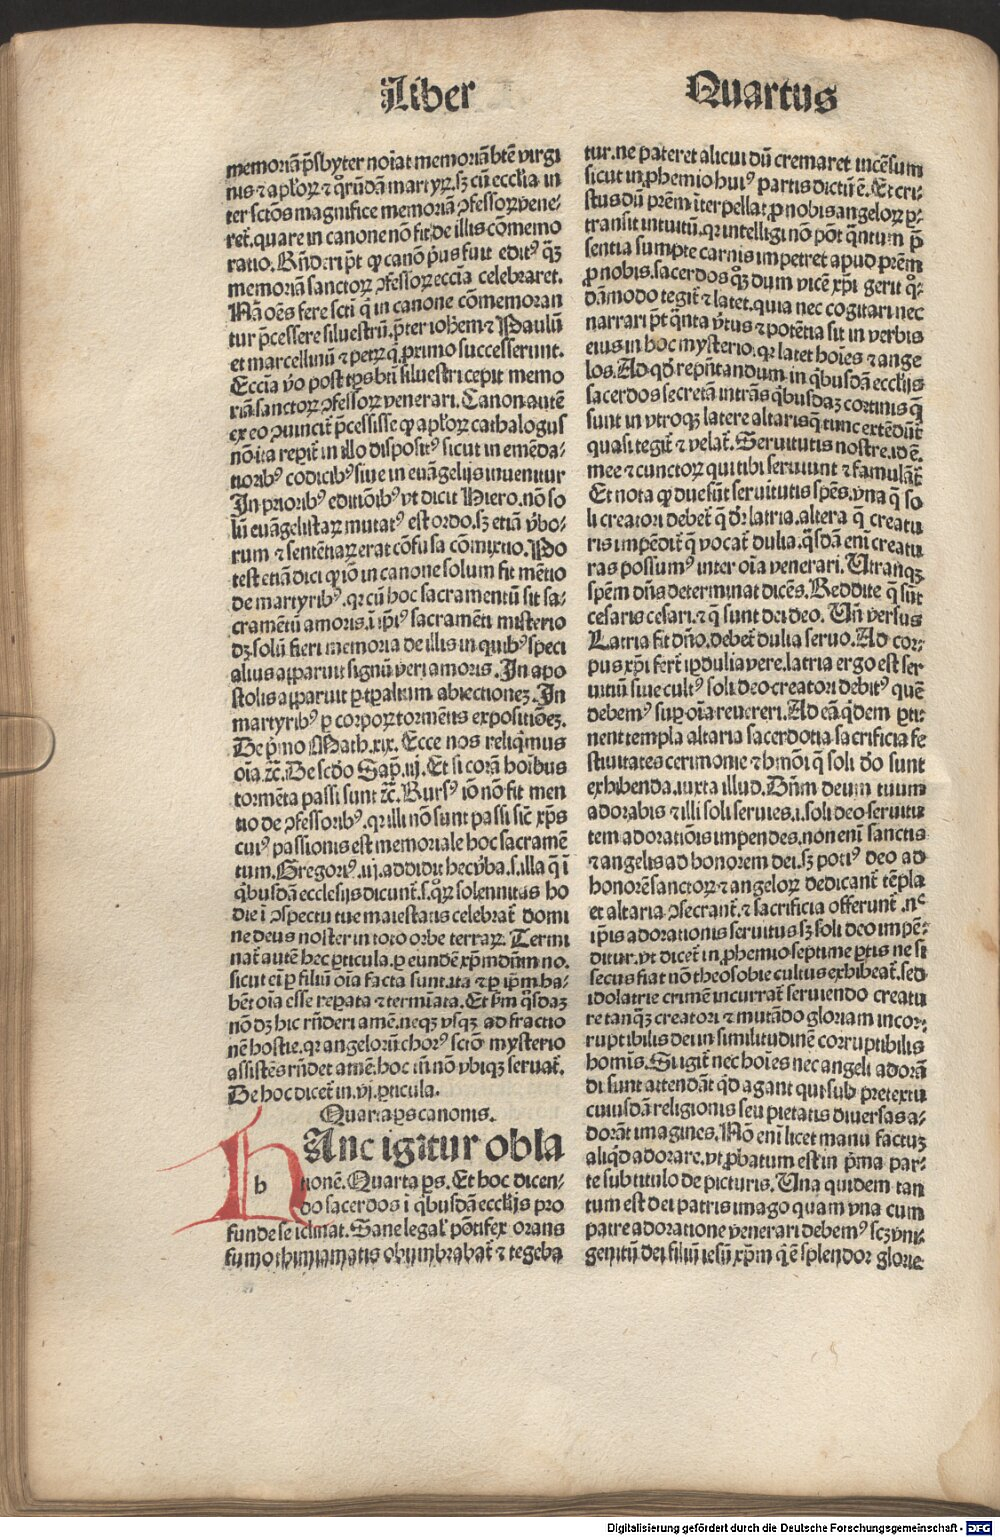 Liber
Quartus
memoriā p̄sbyter noīat memoriā btē virgi
nis ⁊ apl̄oꝝ ⁊ q̄rūdā martyꝝ.sꝫ cū ecclīa in
ter sctōs magnifice memoriā ꝯfessoꝝ vene-
ret̄.quare in canone nō fit de illis cōmemo
ratio.Rn̄deri pt̄ ꝙ canō p̄us fuit editꝰ q̄ꝫ
memoriā sanctoꝝ ꝯfessoꝝ eccīa celebraret.
Nā oēs fere scti q̄ in canone cōmemoran
tur p̄cessere siluestrū.p̄ter ioh̄em ⁊ Paulū
et marcellinū ⁊ petꝝ q̄ primo successerunt.
Eccīa v̄o post tp̄s bti siluestri cepit memo
riā sanctoꝝ ꝯfessoꝝ venerari.Canon autē
ex eo ꝯuincit̄ p̄cessisse ꝙ apl̄oꝝ cathalogus
nō ita reperit̄ in illo dispositꝰ sicut in emēda-
tioribꝰ codicibꝰ siue in euāgelijs inuenitur
In prioribꝰ editiōibꝰ vt dicit Hiero.nō so
lū euāgelistaꝝ mutatꝰ est ordo.sꝫ etiā v̄bo-
rum ⁊ sentētiaꝝ erat cōfusa cōmixtio.Po
test etiā dici ꝙ iō in canone solum fit mētio
de martyribꝰ.qꝛ cū hoc sacramentū sit sa-
cramētū amoris.ī ip̄iꝰ sacramēti misterio
dꝫ solū fieri memoria de illis in quibꝰ speci
alius apparuit signū veri amoris.In apo
stolis apparuit ꝑ tꝑalium abiectionez.In
martyribꝰ ꝑ corpoꝝ tormētis expositiōez.
De p̄mo Math.xix.Ecce nos reliq̄imus
oīa.⁊c̄.De scd̄o Sap̄.iij.Et si corā hoībus
tormēta passi sunt ⁊c̄.Rursꝰ iō nō fit men
tio de ꝯfessoribꝰ.qꝛ illi nō sunt passi sic̄ xp̄s
cuiꝰ passionis est memoriale hoc sacramē
tum.Gregoriꝰ.iij.addidit hec v̄ba.s.illa q̄ ī
q̄busdā ecclesijs dicunt̄.s.q̄ꝝ solennitas ho
die ī ꝯspectu tue maiestatis celebrat̄ domi
ne deus noster in toto orbe terraꝝ.Termi
nat̄ autē hec ꝑticula.ꝑ eundē xp̄m dn̄m no.
sicut eī ꝑ filiū oīa facta sunt.ita ⁊ ꝑ ip̄m ha-
bēt oīa esse reparata ⁊ termīata.Et ẜm q̄sdaꝫ
nō dꝫ hic rn̄deri amē.neqꝫ vsqꝫ ad fractio
nē hostie.qꝛ angeloꝝ chorꝰ sctō mysterio
assistēs rn̄det amē.hoc tn̄ nō vbiqꝫ seruat̄.
De hoc dicet̄ in.vj.ꝑticula.
Quarta ꝑs canonis.
h
HAnc igitur obla
tionē.Quarta ꝑs.Et hoc dicen-
do sacerdos ī q̄busdā eccl̄ijs pro
funde se iclinat.Sane legal̓ pōtifex orans
fumo thimiamatis obumbrabat̄ ⁊ tegeba
tur.ne pateret alicui dū cremaret incēsum
sicut in ꝓhemio huiꝰ partis dictū ē.Et cri-
stus dū prēm īterpellat ꝓ nobis angeloꝝ ꝑ-
transit intuitū.qꝛ intelligi nō pōt q̄ntum p̄
sentia sumpte carnis impetret apud prēm
ꝓ nobis.sacerdos qꝫ dum vicē xp̄i gerit q̄-
dāmodo tegit̄ ⁊ latet.quia nec cogitari nec
narrari pt̄ q̄nta v̄tus ⁊ potētia sit in verbis
eius in hoc mysterio.qꝛ latet hoīes ⁊ ange
los.Ad qd̄ repn̄tandum in q̄busdā eccl̄ijs
sacerdos secretā intrās q̄busdaꝫ cortinis q̄
sunt in vtroqꝫ latere altaris q̄ tunc extēdūt̄
quasi tegit̄ ⁊ velat̄.Seruitutis nostre.id ē.
mee ⁊ cunctoꝝ qui tibi seruiunt ⁊ famulāt̄
Et nota ꝙ due sūt seruitutis spēs.vna q̄ so
li creatori debet̄ q̄ dr̄ latria.altera q̄ creatu
ris impēdit̄ q̄ vocat̄ dulia.q̄sdā enī creatu
ras possumꝰ inter oīa venerari.Utranqꝫ
spēm dn̄s determinat dicēs.Reddite q̄ sūt
cesaris cesari.⁊ q̄ sunt dei deo. Un̄ versus
Latria fit dn̄o.debet̄ dulia seruo.Ad cor-
pus xp̄i fert̄ ipdulia vere.latria ergo est ser
uitiū siue cultꝰ soli deo creatori debitꝰ quē
debemꝰ suꝑ oīa reuereri.Ad eā q̄dem ꝑti-
nent templa altaria sacerdotia sacrificia fe
stiuitates cerimonie ⁊ hmōi q̄ soli dō sunt
exhibenda.iuxta illud.Dn̄m deum tuum
adorabis ⁊ illi soli seruies.i.soli deo seruitu
tem adoratiōis impendes.non enī sanctis
⁊ angelis ad honorem dei.sꝫ potiꝰ deo ad
honorē sanctoꝝ ⁊ angeloꝝ dedicant̄ tēpla
et altaria ꝯsecrant̄.⁊ sacrificia offerunt̄.nᶜ
ip̄is adorationis seruitus sꝫ soli deo impē-
ditur.vt dicet̄ in ꝓhemio septime ꝑtis ne si
secus fiat nō theosobie cultus exhibeat̄.sed
idolatrie crimē incurrat̄ seruiendo creatu
re tanqꝫ creatori ⁊ mutādo gloriam incor-
ruptibilis dei in similitudinē corruptibilis
homīs.Si igit̄ nec hoīes nec angeli adorā
di sunt attendāt qd̄ agant qui sub pretextu
cuiusdā religionis seu pietatis diuersas a-
dorāt imagines.Nō enī licet manu factuꝫ
aliqd̄ adorare.vt ꝓbatum est in p̄ma par-
te sub titulo de picturis.Una quidem tan
tum est dei patris imago quam vna cum
patre adoratione venerari debemꝰ scꝫ vni-
genitū dei filiū iesū xp̄m q̄ ē splendor glorie
Digitalisierung gefördert durch die Deutsche Forschungsgemeinschaft - DFG